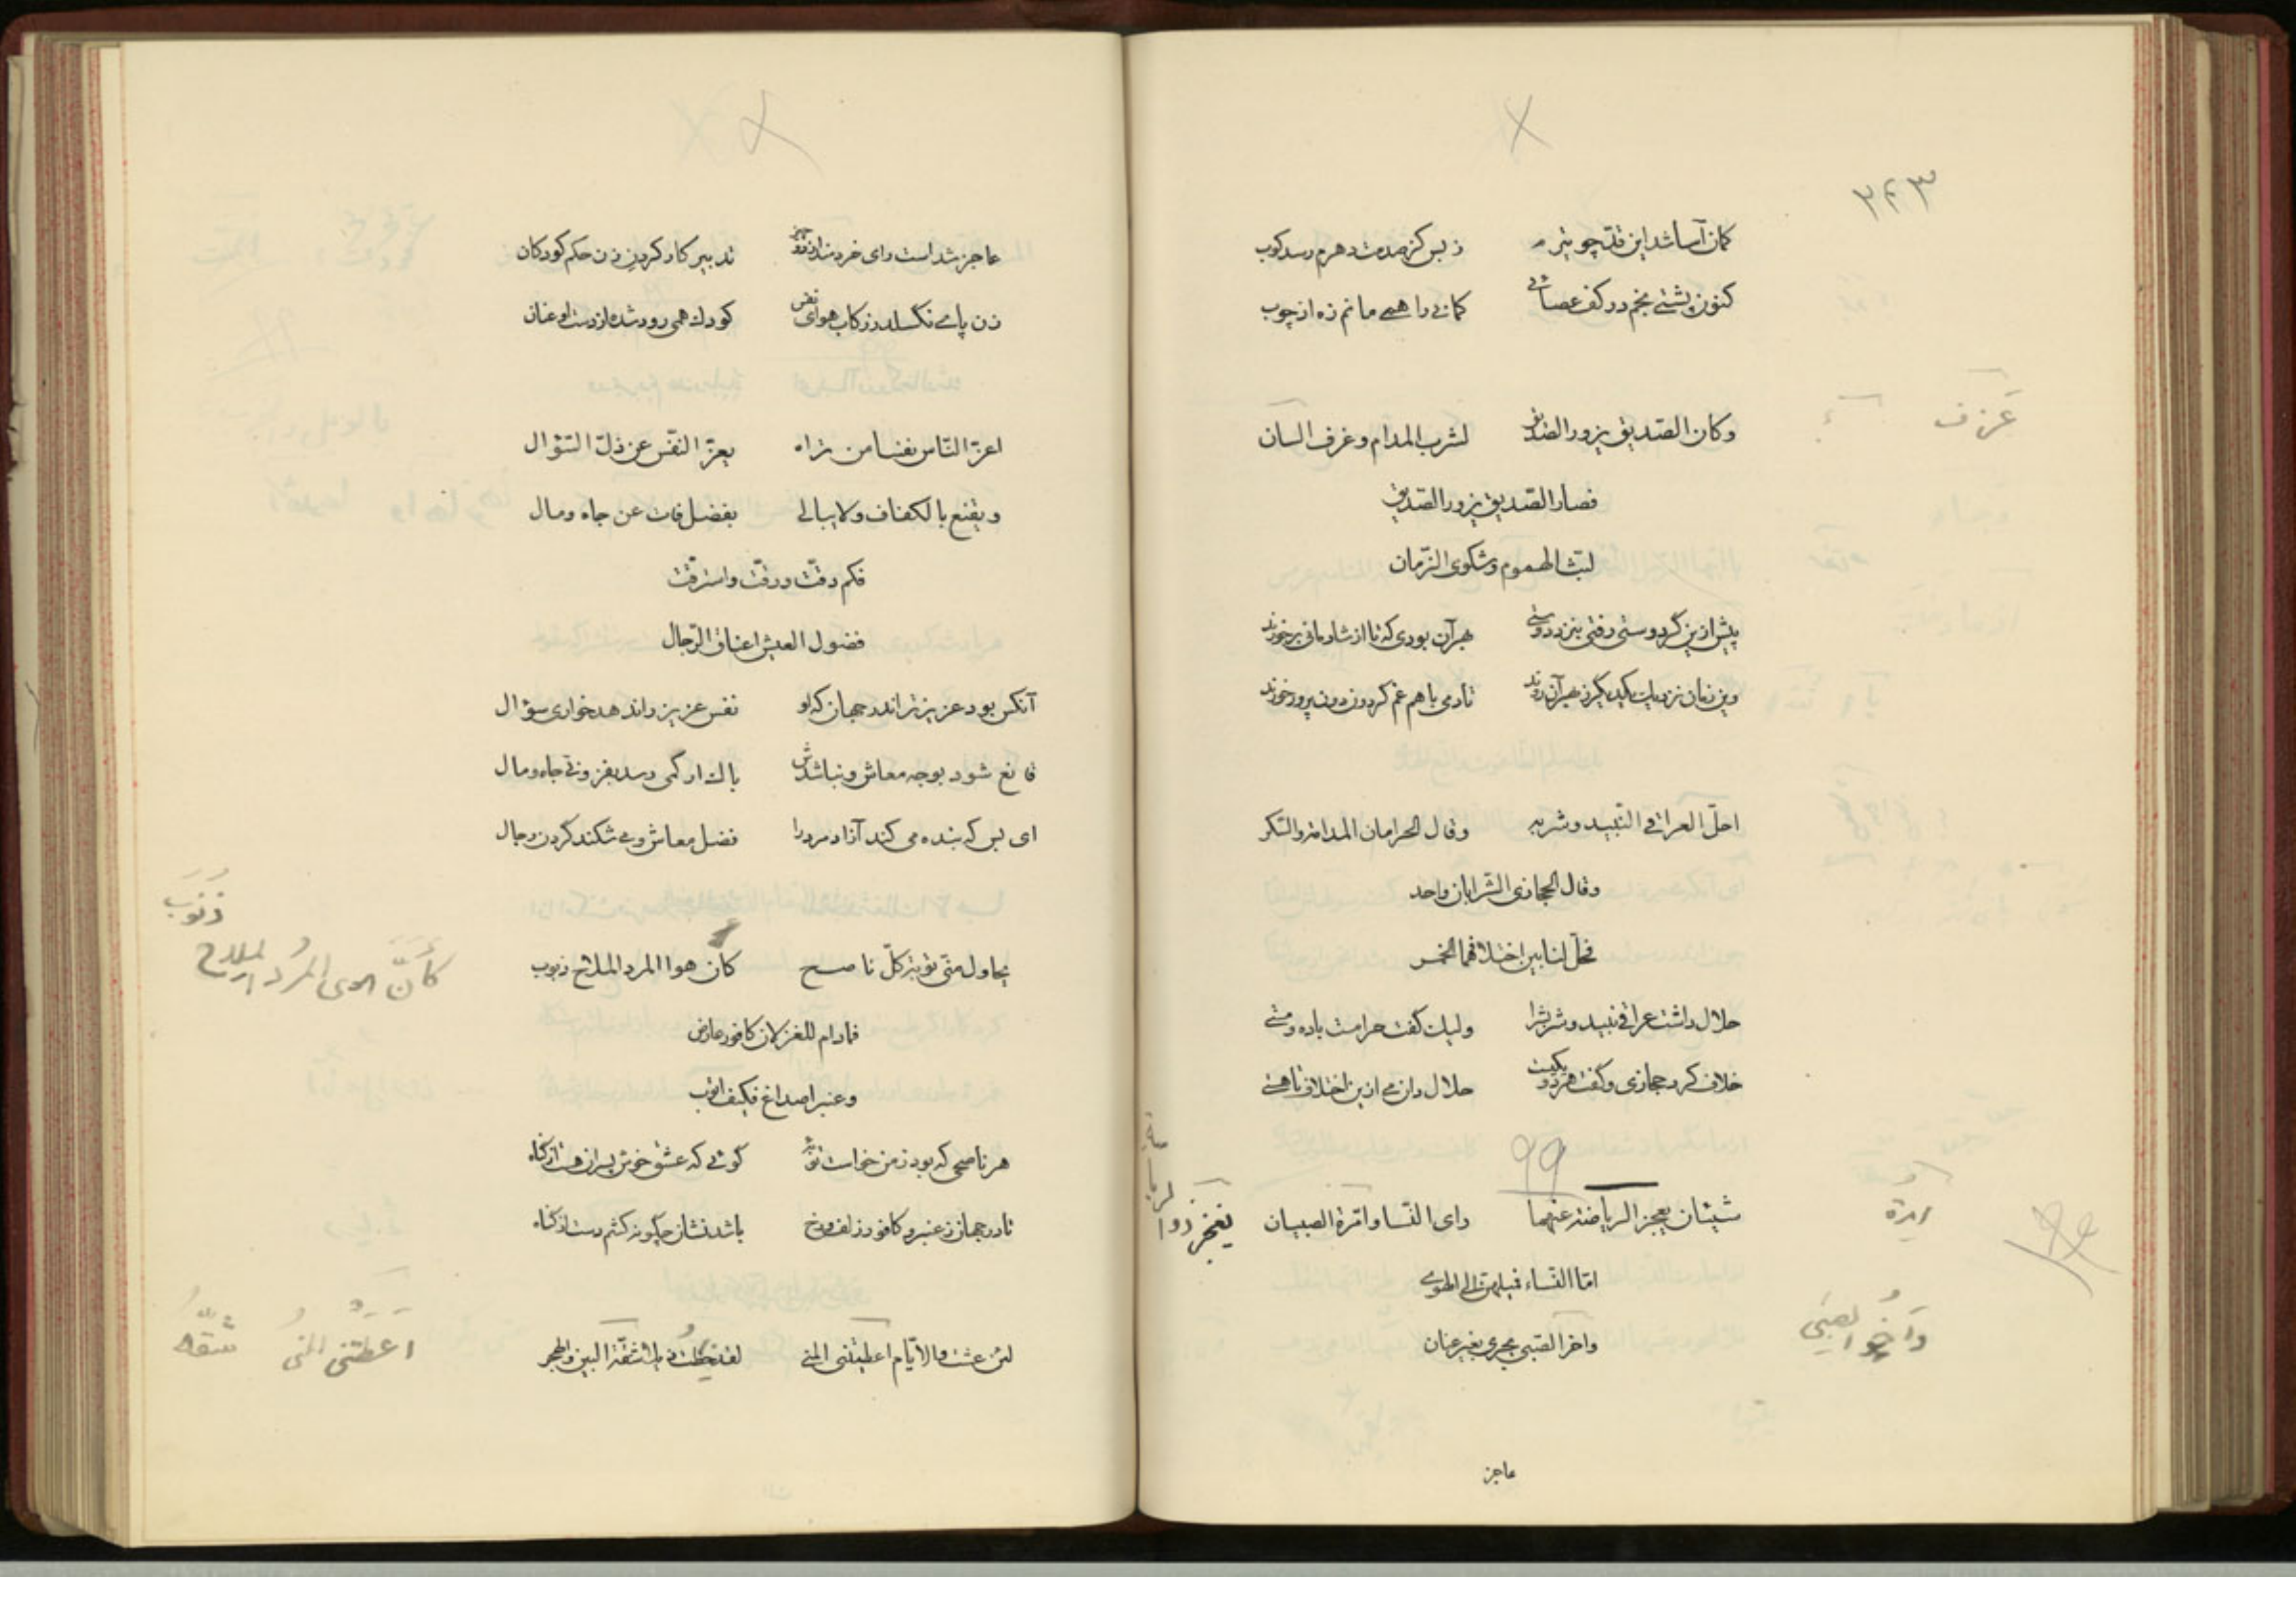 ۳۴۳
کمان آسا شد این قد چو تیرم زبس کز صدمت دهرم رسد کوب
کنون پشتی بخم در کف عصائی کمانی را همی مانم زه از چوب
وکان الصدیق یزور الصدیق لشرب المدام وعزف القیان
عزف
فصار الصدیق یزور الصدیق
لبث الهموم وشکوی الزمان
پیش ازین گر دوستی رفتی بنزد دوستی بهر آن بودی که تا از شادمانی برخورند
وین زمان نزدیک یکدیگر بهر آن روند تا دمی با هم غم گردون دون پرور خورند
احلّ العراقی النبیذ وشربه وقال الحرامان المدامة والسکر
وقال الحجازی الشرابان واحد
فحلّ لنا بین اختلافهما الخمر
حلال داشت عراقی نبیذ و شربش را ولیک گفت حرامست باده و مستی
خلاف کرد حجازی و گفت هر دو یکیست حلال دان می ازین اختلاف تا هستی
۹۹
شیئان یعجز الریاضة عنهما رای النسا وامرة الصبیان
امرة
یعجز ذوا
اما النساء فمیلهن الی الهوی
واخو الصبی یجری بغیر عنان
واخو الصبی
عاجز
عاجز شد است رای خردمند از دو چیز تدبیر کار کردن زن حکم کودکان
زن پای نگسلد ز رکاب هوای نفس کودک همی رود شده از دست او عنان
اعزّ النّاس نفسا من تراه یعزّ النّفس عن ذلّ السّؤال
ویقنع بالکفاف ولا یبالی بفضل فات عن جاه ومال
فکم دقّت ورقّت واسترقّت
فضول العیش اعناق الرّجال
آنکس بود عزیزتر اندر جهان که او نفس عزیز را ندهد خواری سؤال
قانع شود بوجه معاش و نباشدش باک ار کمی رسد بفزونی جاه و مال
ای بس که بنده می کند آزاد مرد را فضل معاش و می شکند گردن رجال
ذنوب
یحاول منّی توبة کلّ ناصح کان هوا المرد الملاح ذنوب
کأنّ هوی المرد الملاح
فمادام للغزلان کافور عارض
وعنبر اصداغ فکیف اتوب
هر ناصحی که بود ز من خواست توبه گوئی که عشق خوش پسران هست از گناه
تا در جهان ز عنبر و کافور زلف و رخ باشد نشان چگونه کشم دست از گناه
لئن عشت والایّام اعطیتنی المنی لقد شقّة البین والهجر
اعطتنی المنی شقّة